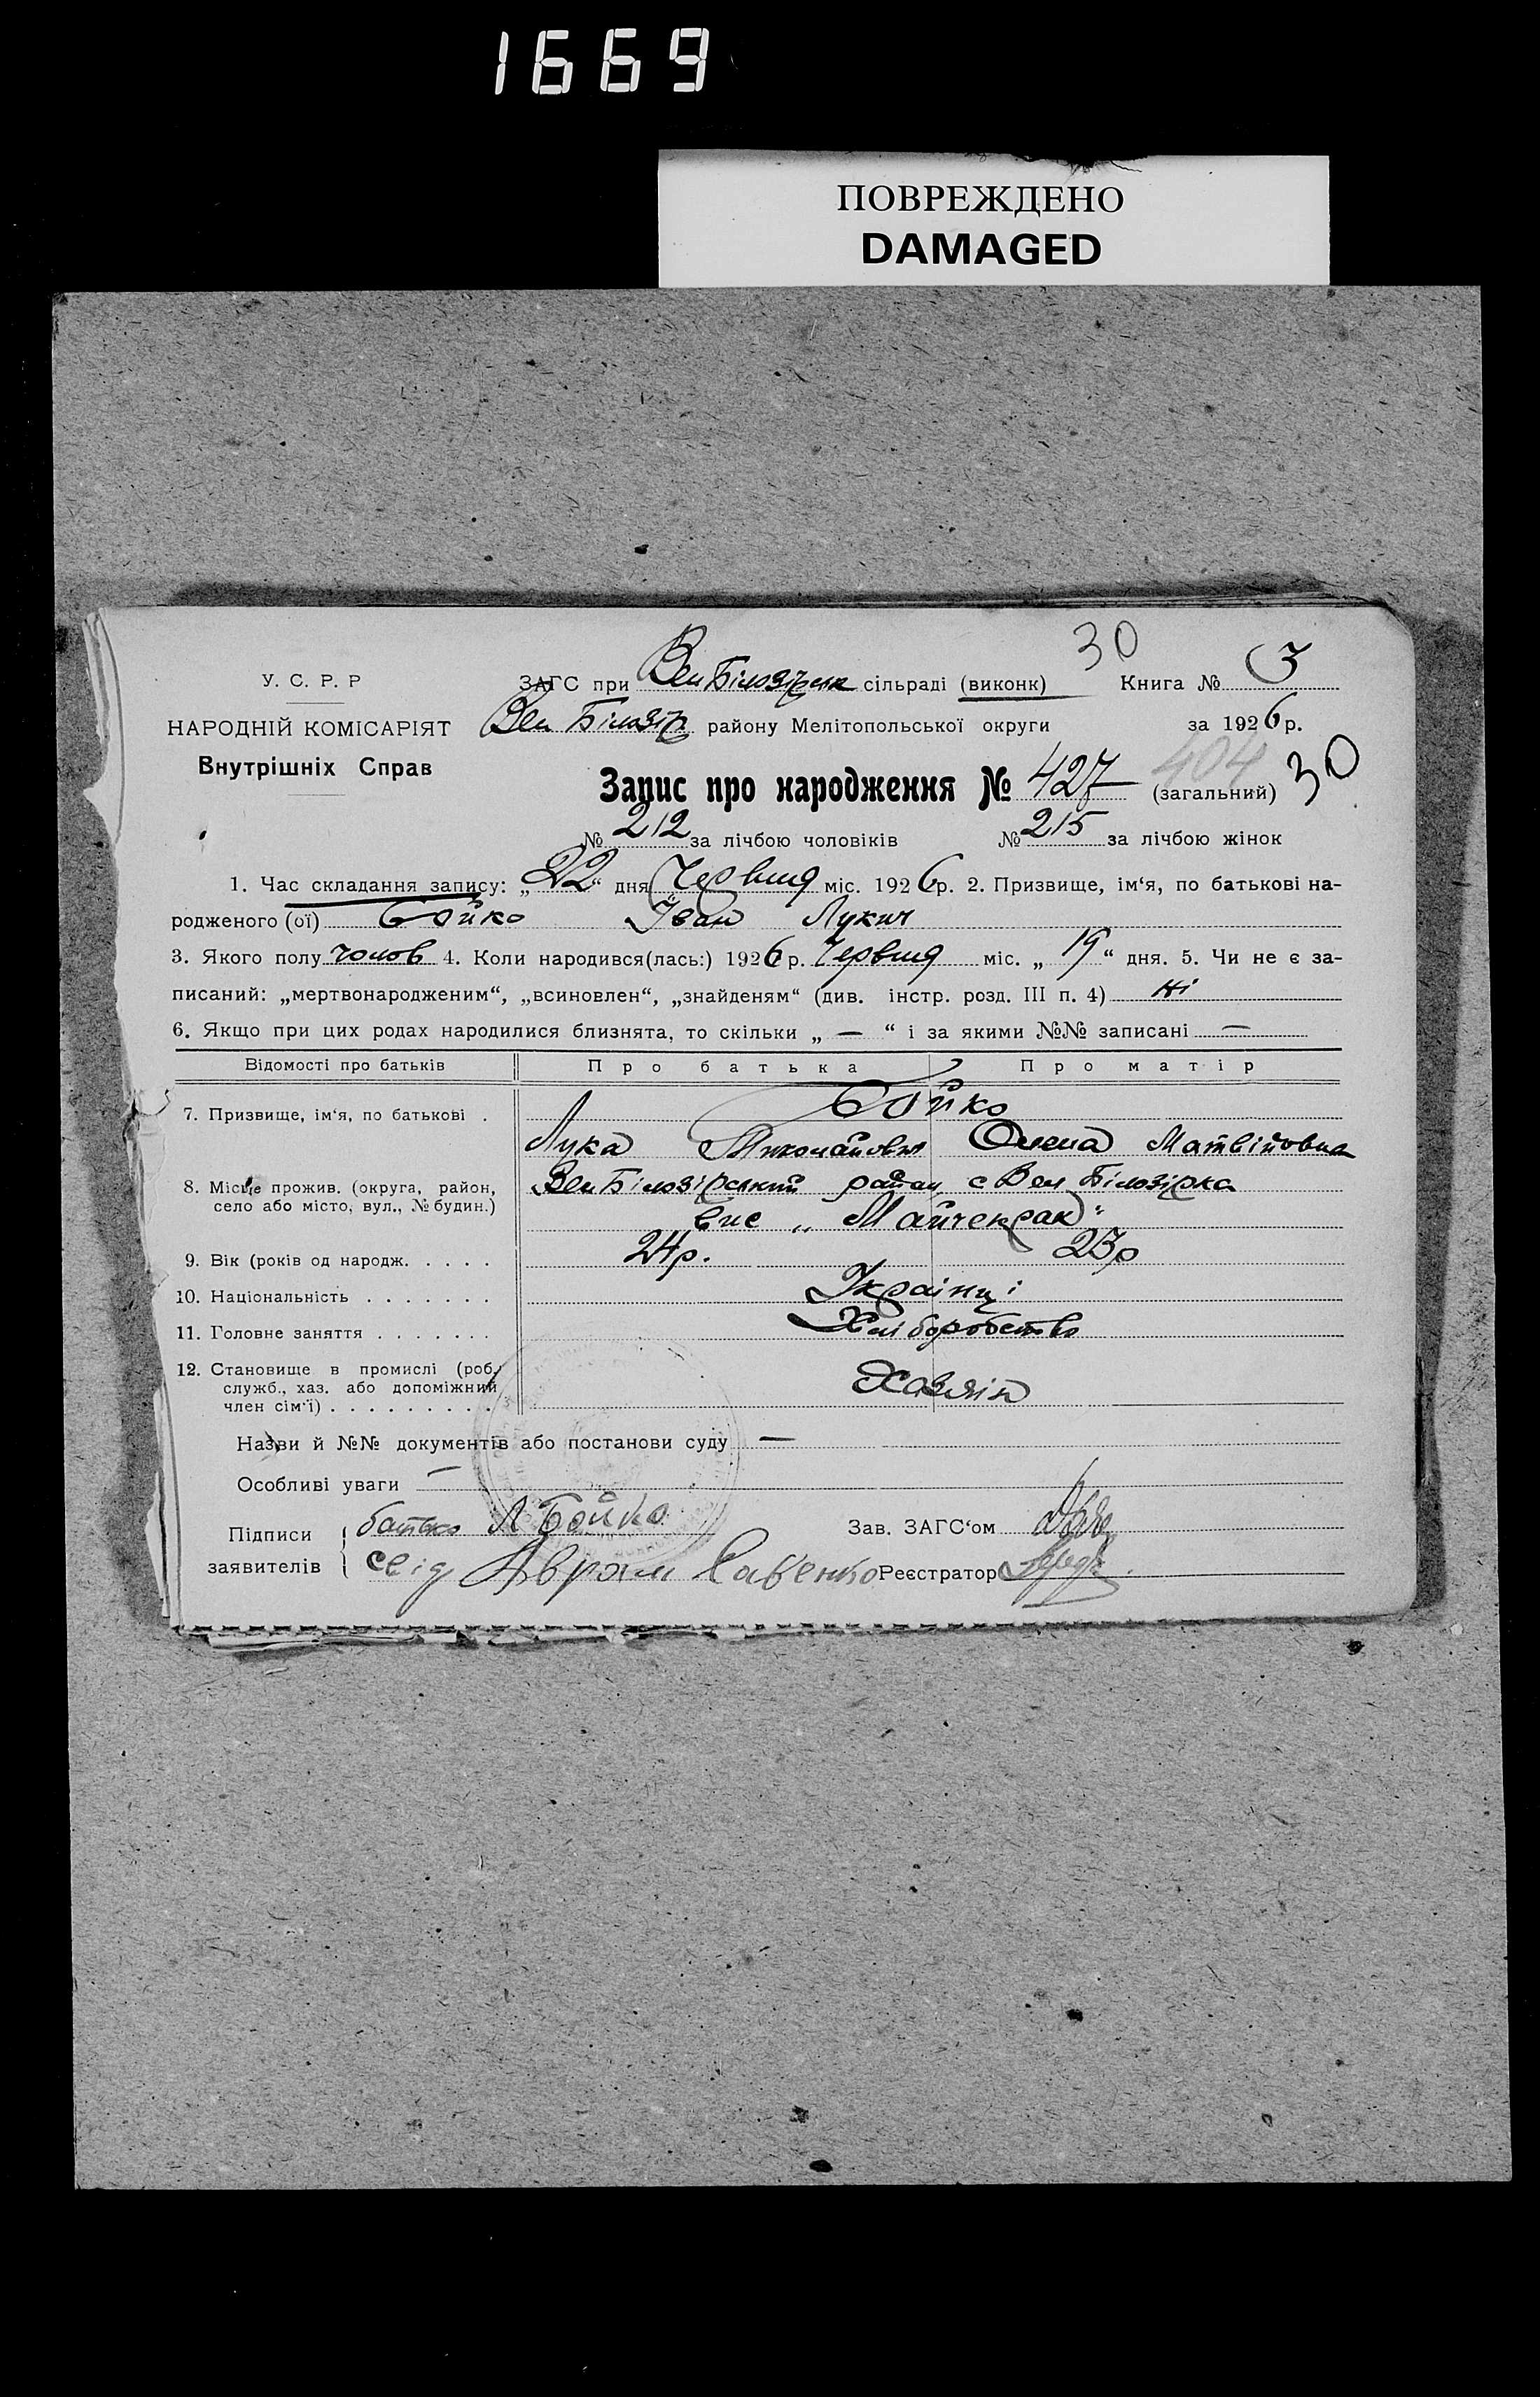 1669
ПОВРЕЖДЕНО
DAMAGED
30
У. С. Р. Р
ЗАГС при Вел Білозірськ сільраді (виконк) Книга № 3
НАРОДНІЙ КОМІСАРІЯТ
Вел Білозір району Мелітопольської округи за 1926 р.
Внутрішніх Справ
404
Запис про народження № 427 (загальний) 30
№ 212 за лічбою чоловіків № 215 за лічбою жінок
1. Час складання запису: „22“ дня Червця міс. 1926 р. 2. Призвище, ім‘я, по батькові на-
родженого (ої) Бойко Іван Лукич
3. Якого полу чолов 4. Коли народився(лась:) 1926 р. Червця міс. „19“ дня. 5. Чи не є за-
писаний: „мертвонародженим“, „всиновлен“, „знайденям“ (див. інстр. розд. III п. 4) ні
6. Якщо при цих родах народилися близнята, то скільки „ — “ і за якими №№ записані —
Відомості про батьків Про батька Про матір
7. Призвище, ім‘я, по батькові . Бойко
Лука Миколайович Олена Матвійовна
8. Місце прожив. (округа, район, Вел Білозірський район с Вел Білозірка
село або місто, вул., № будин.)
вис „
9. Вік (років од народж. . . . . 24р. 23р
10. Національність . . . . . . . Українці
11. Головне заняття . . . . . . . Хліборобство
12. Становище в промислі (роб.,
служб., хаз. або допоміжний Хазяїн
член сім‘ї) . . . . . . . . .
Назви й №№ документів або постанови суду —
Особливі уваги —
Підписи батько Л Бойко Зав. ЗАГС‘ом
заявителів свід Аврам Савенко Реєстратор